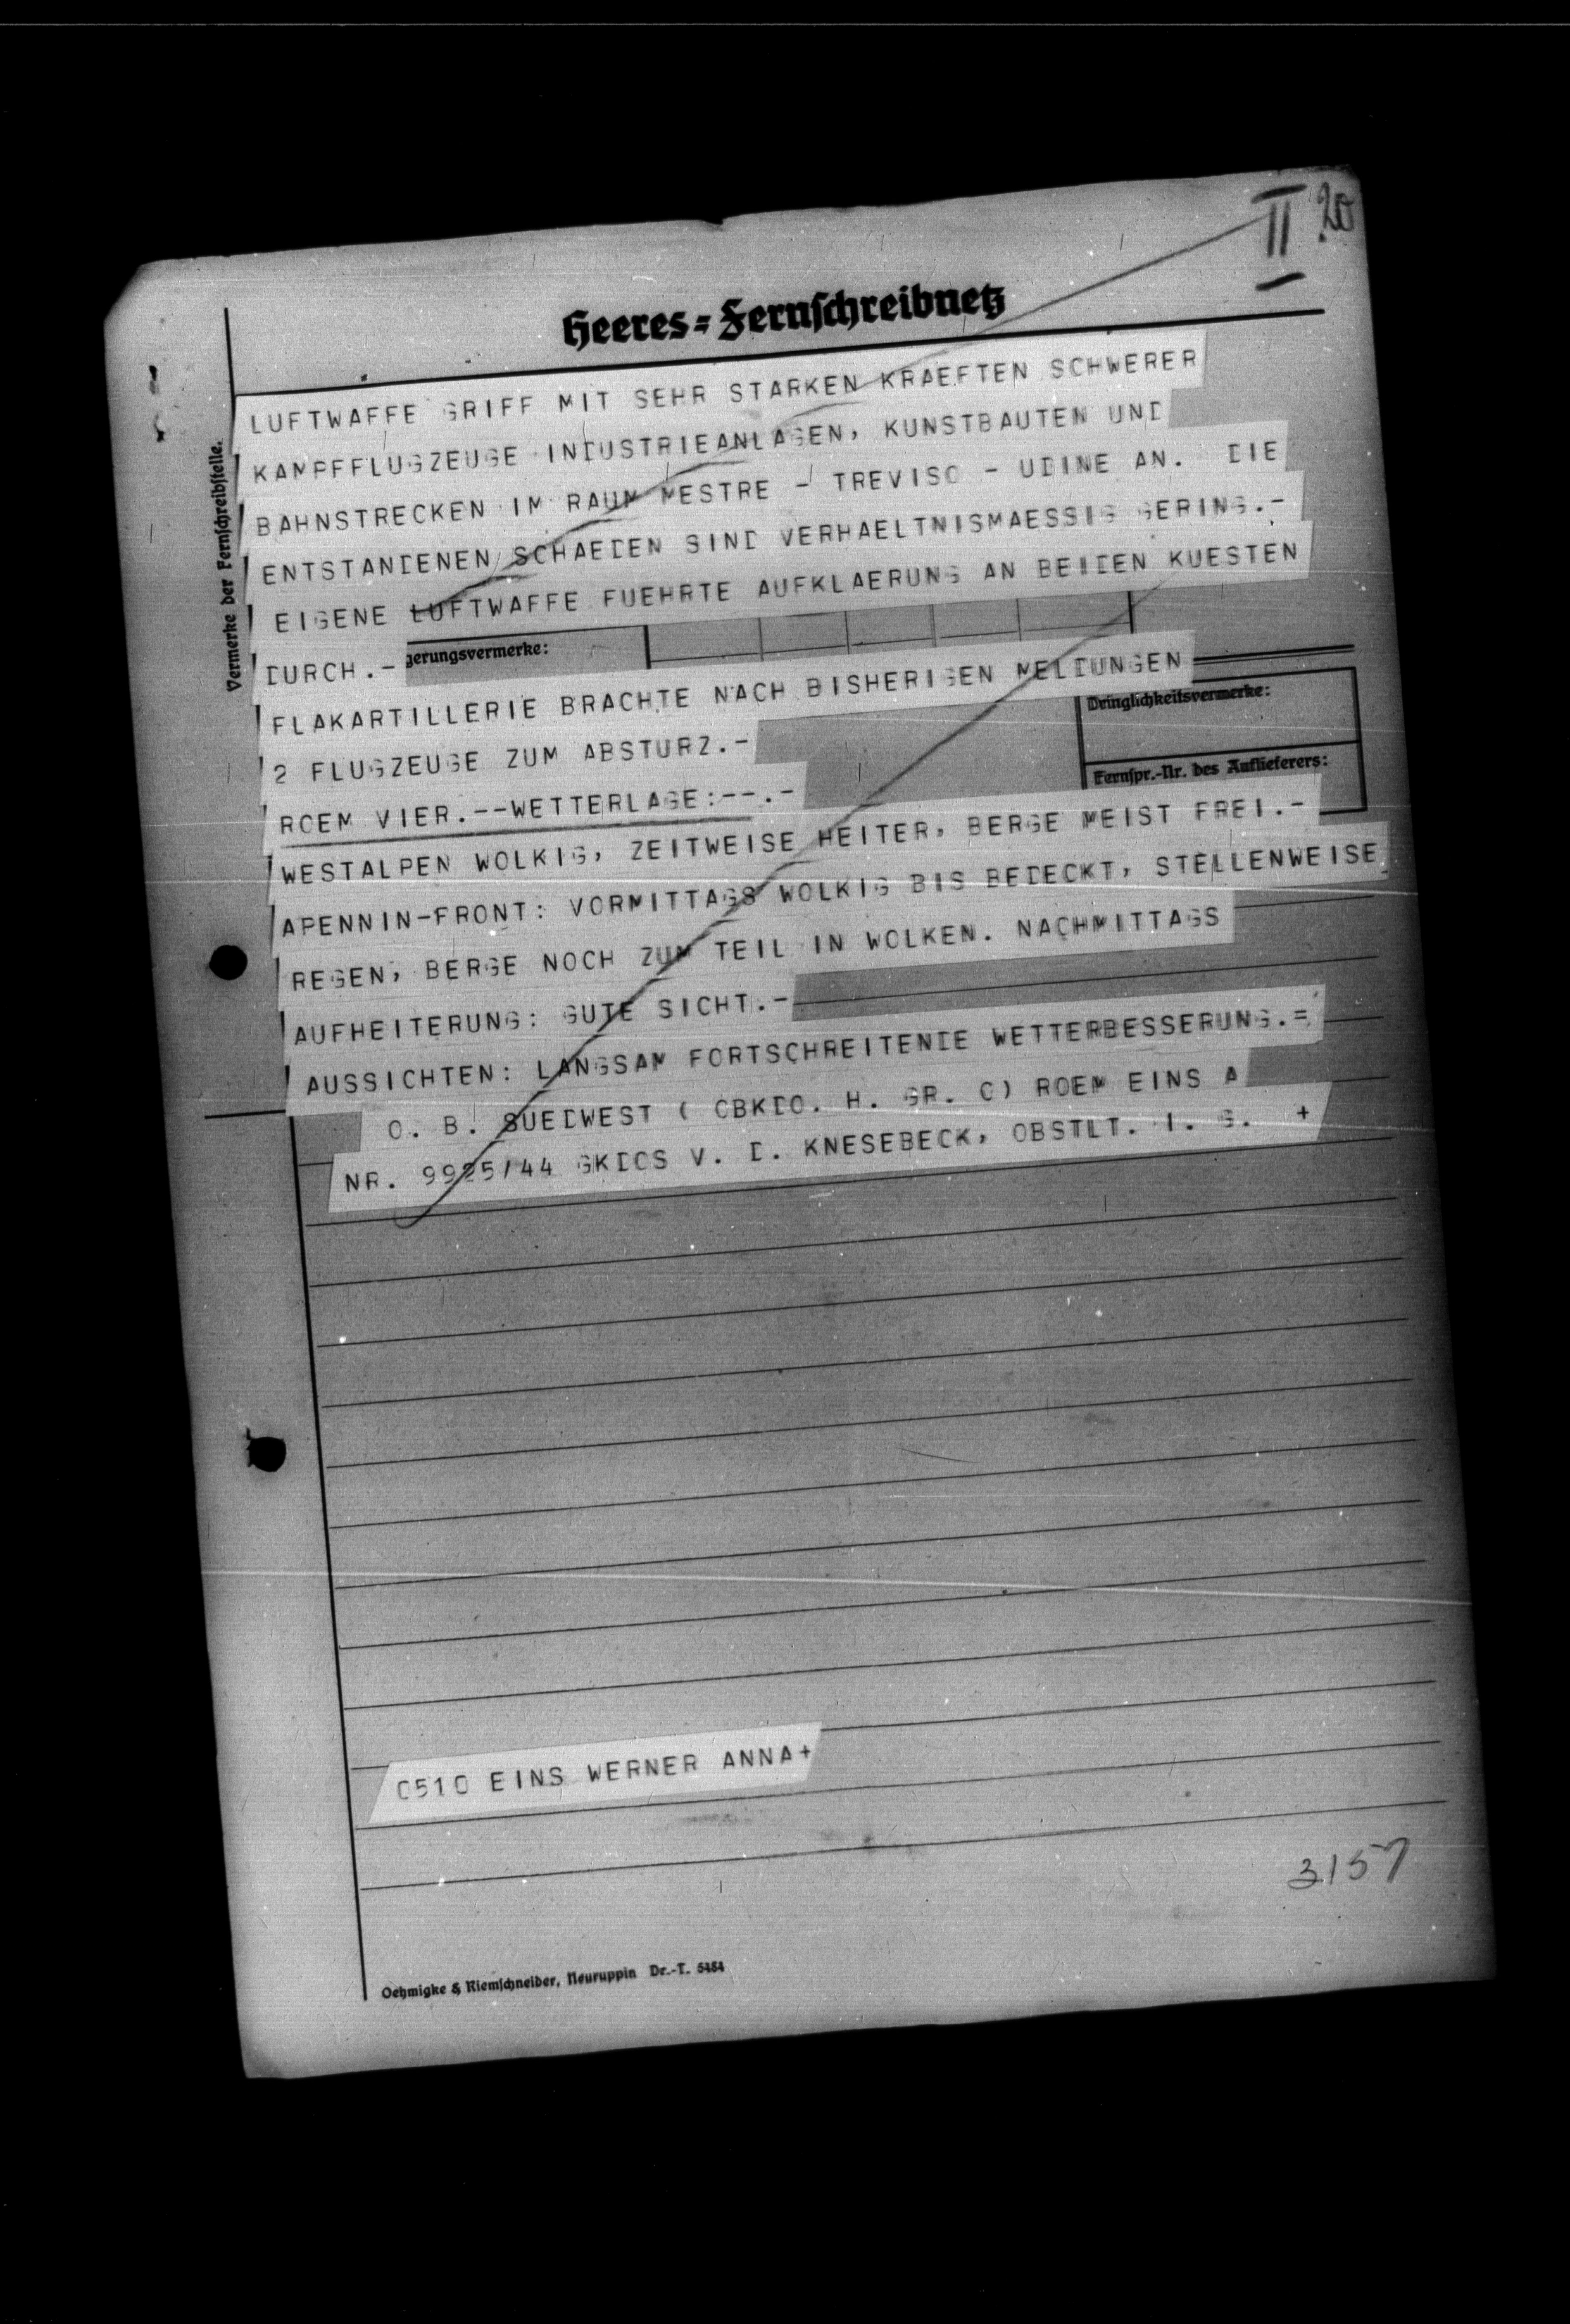 II 20
Heeres-Fernschreibnetz
Vermerke der Fernschreibstelle.
LUFTWAFFE GRIFF MIT SEHR STARKEN KRAEFTEN SCHWERER
KAMPFFLUGZEUGE INDUSTRIEANLAGEN, KUNSTBAUTEN UND
BAHNSTRECKEN IM RAUM MESTRE - TREVISO - UDINE AN. DIE
ENTSTANDENEN SCHAEDEN SIND VERHAELTNISMAESSIG GERING.-
EIGENE LUFTWAFFE FUEHRTE AUFKLAERUNG AN BEIDEN KUESTEN
DURCH.-
gerungsvermerke:
FLAKARTILLERIE BRACHTE NACH BISHERIGEN MELDUNGEN
Dringlichkeitsvermerke:
2 FLUGZEUGE ZUM ABSTURZ.-
Fernspr.-Nr. des Auflieferers:
ROEM VIER.--WETTERLAGE:--.-
WESTALPEN WOLKIG, ZEITWEISE HEITER, BERGE MEIST FREI.-
APENNIN-FRONT: VORMITTAGS WOLKIG BIS BEDECKT, STELLENWEISE
REGEN, BERGE NOCH ZUM TEIL IN WOLKEN. NACHMITTAGS
AUFHEITERUNG: GUTE SICHT.-
AUSSICHTEN: LANGSAM FORTSCHREITENDE WETTERBESSERUNG.=
O. B. SUEDWEST ( OBKDO. H. GR. C) ROEM EINS A
NR. 9925/44 GKDOS V. D. KNESEBECK, OBSTLT. I. G. +
0510 EINS WERNER ANNA+
3157
Oehmigke & Riemschneider, Neuruppin Dr.-T. 5454